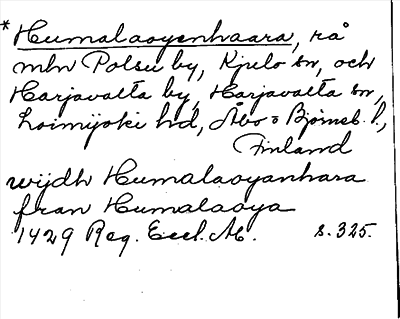 *Humalaoyenhaara, rå
mln Polsu by, Kjulo sn, och
Harjavalta by, Harjavalta sn,
Loimijoki hd, Åbo o Björneb. l.,
Finland
wijdh Humalaoyanhara
fran Humalaoya
1429 Reg. Eccl. Ab. s. 325.